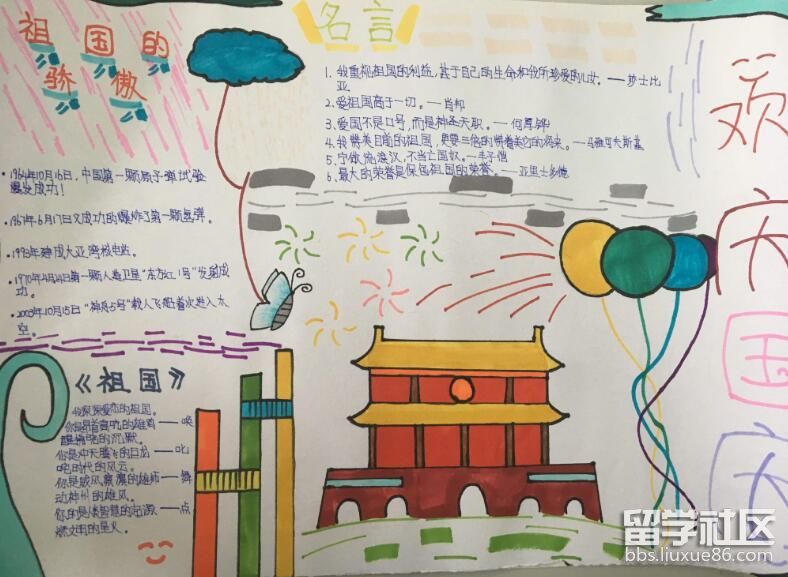 祖国的
骄傲
1964年10月16日,中国第一颗原子弹试验
爆发成功!
1967年6月17日又成功的爆炸了第一颗氢弹。
1993年建成大亚湾核电站。
1970年4月24日第一颗人造卫星“东方红1号”发射成
功。
2003年10月15日“神舟5号”载人飞船首次进入太
空。
名言
1. 我重视祖国的利益,甚于自己的生命和我所珍爱的儿女。——莎士比
亚
2.爱祖国高于一切。——肖邦
3.爱国不是口号,而是神圣天职。——何厚铧
4.我赞美目前的祖国,更要三倍的赞美它的将来。——马雅可夫斯基
5.宁做流浪汉,不当亡国奴。——丰子恺
6.最大的荣誉是保卫祖国的荣誉。——亚里士多德
欢
庆
国
庆
《祖国》
我深深爱恋的祖国。
你是昂首高吭的雄鸡——唤
醒拂晓的沉默。
你是冲天腾飞的巨龙——叱
咤时代的风云。
你是威风凛凛的雄狮——舞
动神州的雄风。
你是人类智慧的起源——点
燃文明的星火。
留学社区
bbs.liuxue86.com